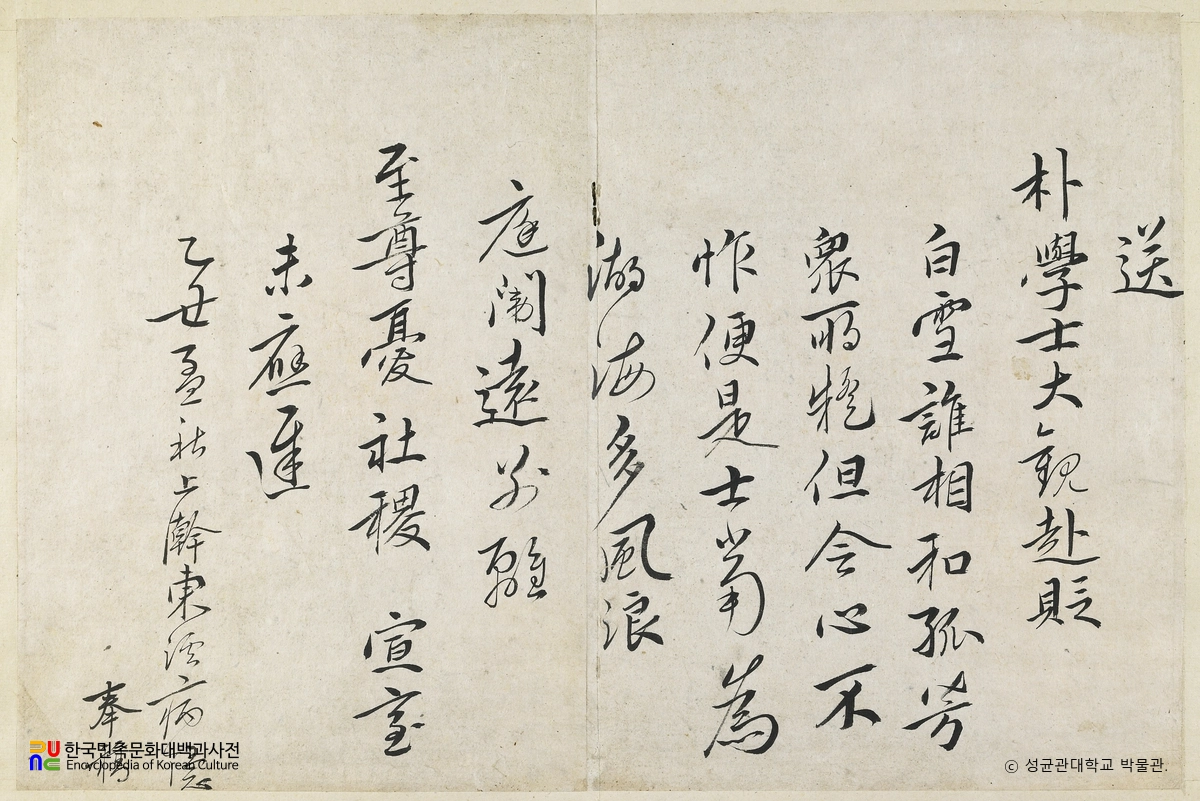 送
朴學士大觀赴貶
白雪誰相和孤芳
衆所疑但令心不
怍便是士當為
湖海多風浪
庭闈遠別離
至尊憂社稷 宣室
未應遲
乙丑孟秋上澣東病
奉
한국민족문화대백과사전
Encyclopedia of Korean Culture
ⓒ 성균관대학교 박물관.